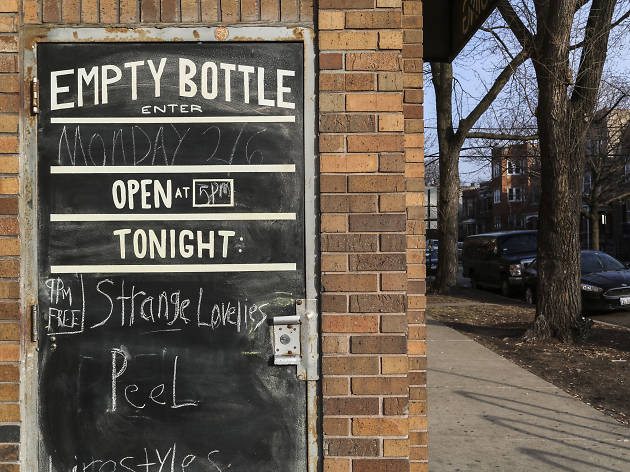 EMPTY BOTTLE
ENTER
MONDAY 2/6
OPEN AT 5PM
TONIGHT:
9PM
FREE
Strange Lovelies
PeeL